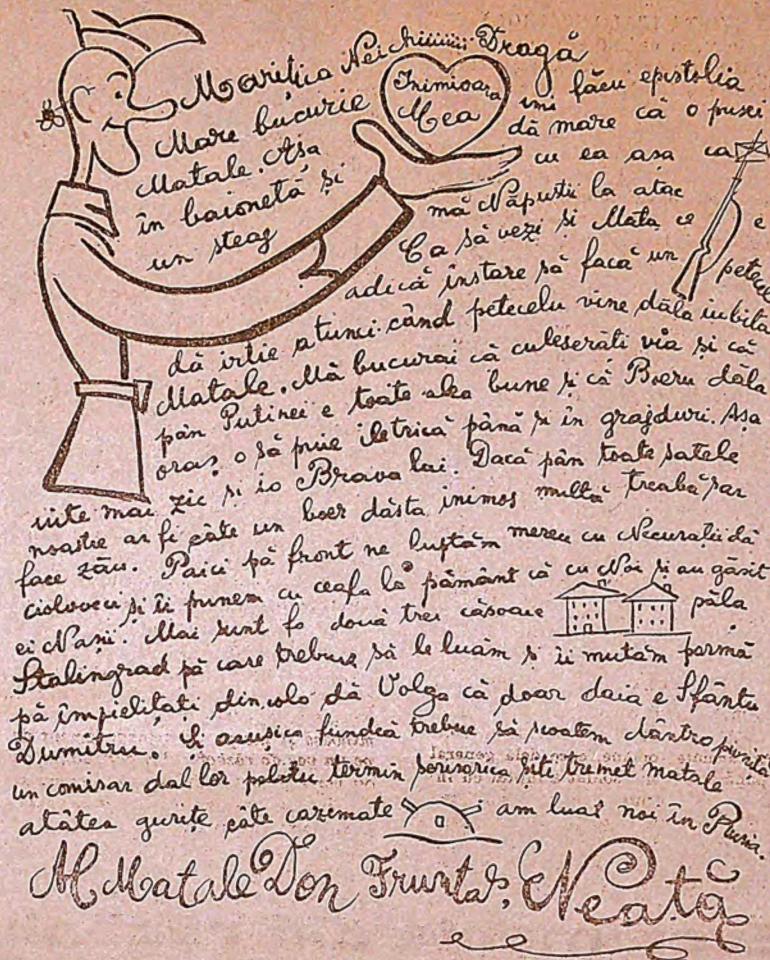 Marițica Neichiiiiiii Dragă
Inimioara
Mea
Mare bucurie îmi făcu epistolia
Matale. Așa dă mare că o pusei
în baionetă și cu ea așa ca
un steag mă Năpustii la atac
Ca să vezi și Mata ce e
adică înstare să facă un petecel
dă irtie atunci când petecelu vine dăla iubita
Matale. Mă bucurai că culeserăti via și că
pân Putinei e toate alea bune și că Boeru dăla
oraș o să puie iletrică până și în grajduri. Așa
vite mai zic și io Brava lui. Dacă pân toate satele
noastre ar fi câte un boer dăsta inimos multă treabă sar
face zău. Paici pă front ne luptăm mereu cu Necurații dă
cioloveci și îi punem cu ceafa la pământ că cu Noi și au găsit
ei Nașii. Mai sunt fo două trei căsoaie păla
Stalingrad pă care trebue să le luăm și îi mutăm parmă
pă împielițați dincolo dă Volga că doar daia e Sfântu
Dumitru. Și acușica fundcă trebue să scoatem dântro
un comisar dal lor termin scrisorica și ti tremet matale
atâtea gurițe câte cazemate am luat noi în Rusia.
Al Matale Don Fruntaș, Neață